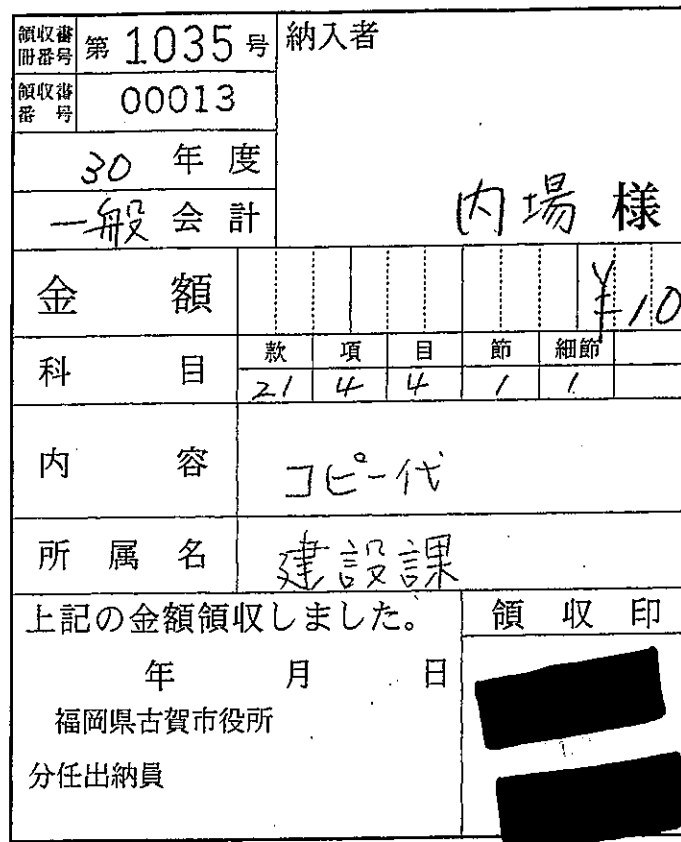 領収書冊番号 第 1035 号
納入者
領収書番号 00013
30 年度
一般 会計
内場 様
金額 ¥10
科目 款 項 目 節 細節
21 4 4 1 1
内容 コピー代
所属名 建設課
上記の金額領収しました。
領収印
年 月 日
福岡県古賀市役所
分任出納員